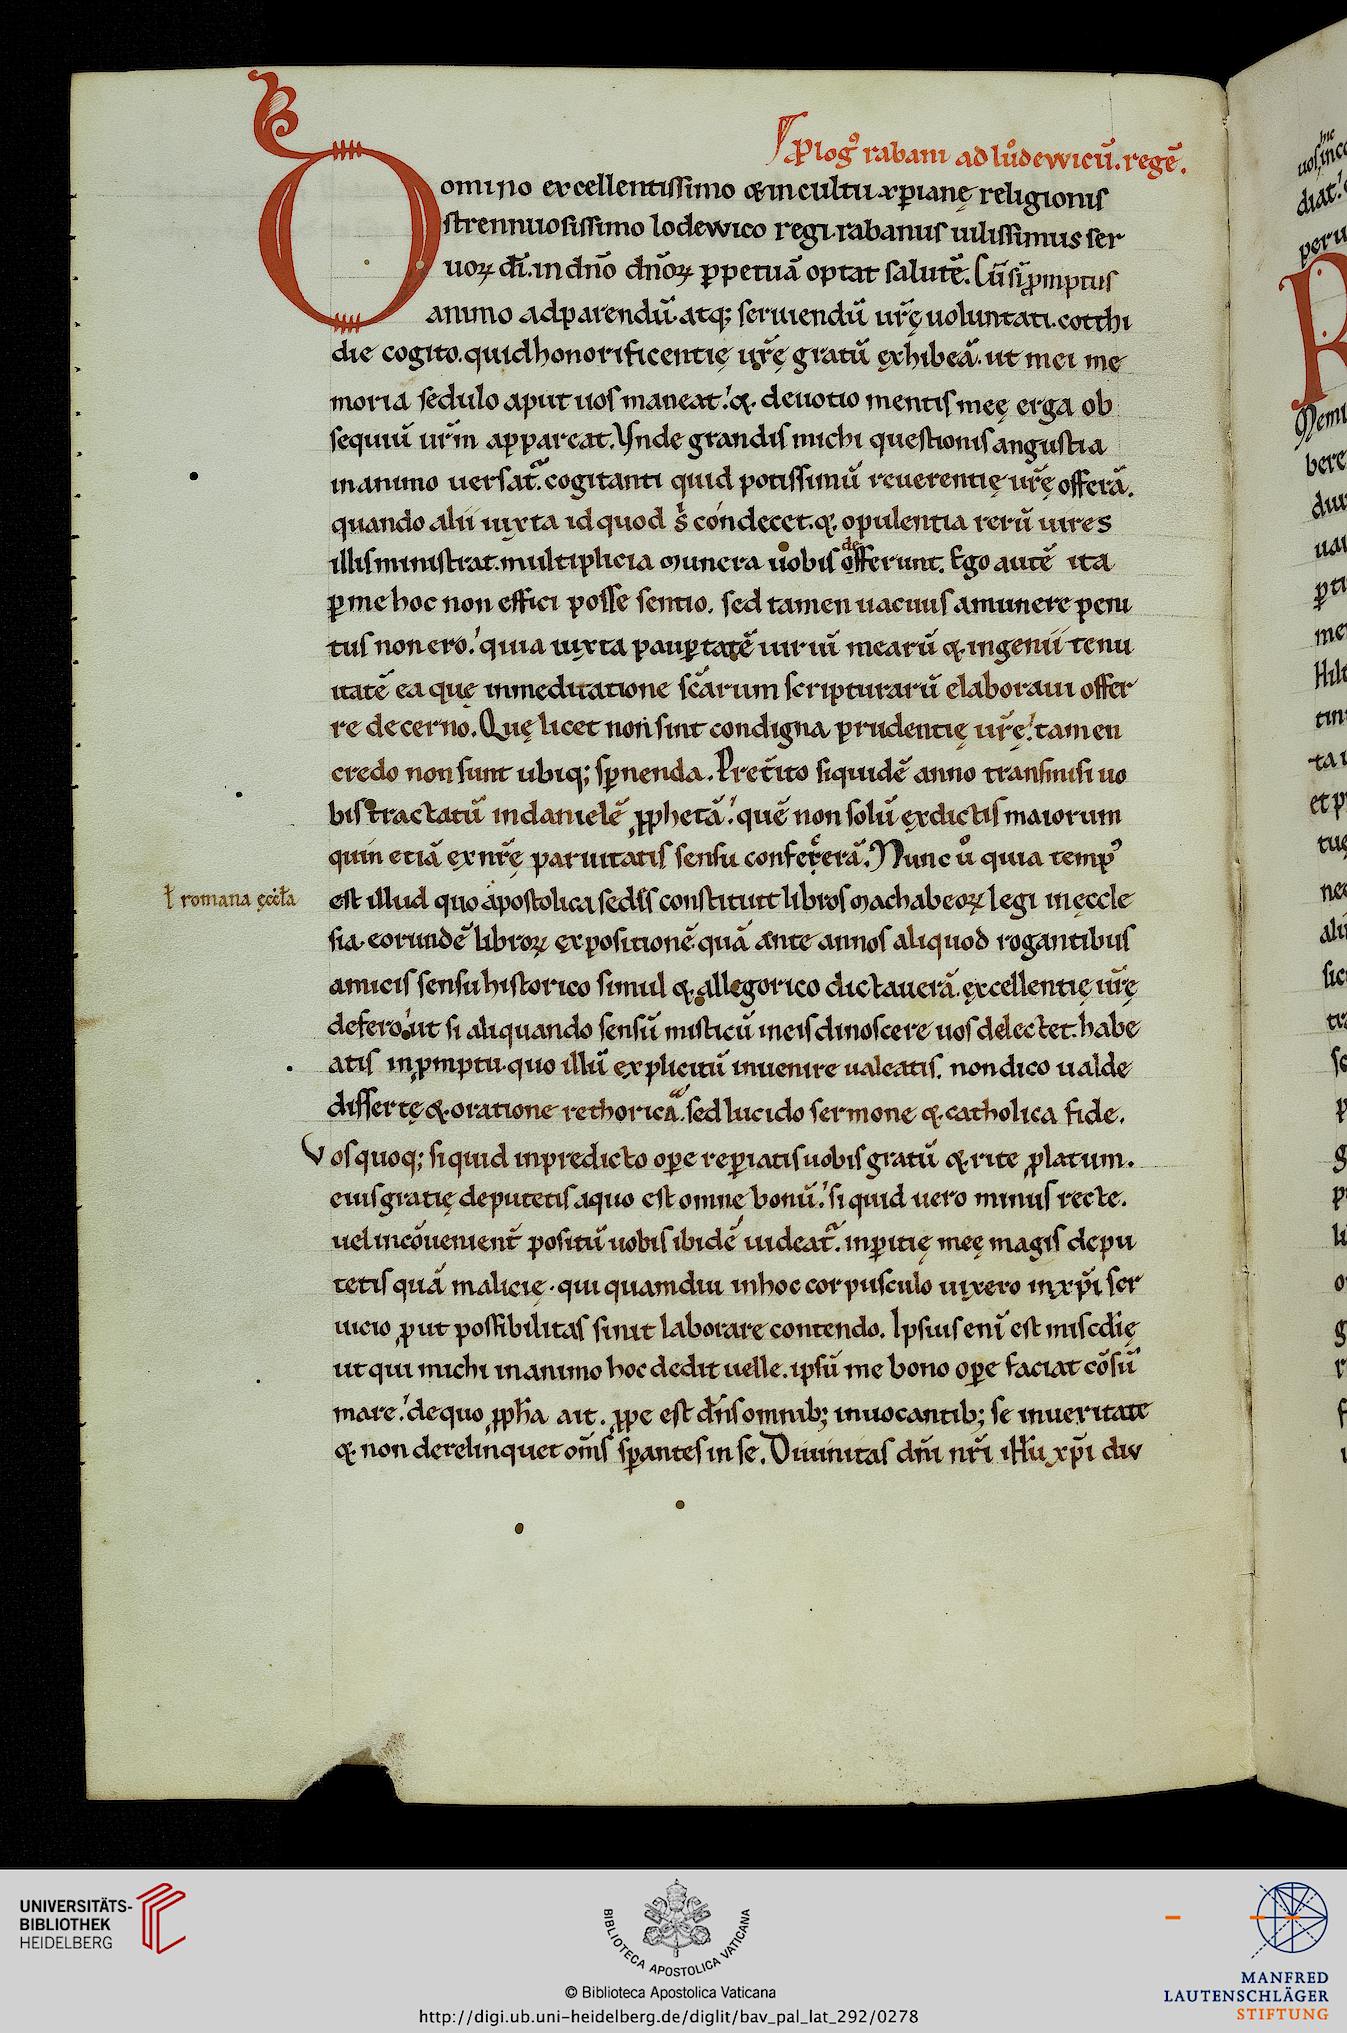 Plogꝰ rabani ad lůdewicū. regē.
Domino excellentissimo & in cultu xp̄ianę religionis
strennuosissimo lodewico regi. rabanus uilissimus ser
uoꝝ dī. in dn̄o dn̄oꝝ ꝑpetuā optat salutē. Cū sī ꝓmptus
animo ad parendū. atq; seruiendū ur̄ę uoluntati. cotthi
die cogito. quid honorificentię ur̄ę gratū exhibeā. ut mei me
moria sedulo aput uos maneat. & deuotio mentis meę erga ob
sequiū ur̄m appareat. Vnde grandis michi questionis angustia
in animo uersat̄. cogitanti quid potissimū reuerentię ur̄ę offerā.
quando alii iuxta id quod s̄ condecet. & opulentia rerū uires
illis ministrat. multiplicia munera uobis offerunt. Ego autē ita
de
ꝑ me hoc non effici posse sentio. sed tamen uacuus a munere peni
tus non ero. quia iuxta pauꝑtatē uiriū mearū & ingenii tenu
itatē ea quę in meditatione scārum scripturarū elaboraui offer
re decerno. Quę licet non sint condigna prudentię ur̄ę. tamen
credo non sunt ubiq; sꝑnenda. Preterito siquidē anno transmisi uo
bis tractatū in danielē ꝓphetā. quē non solū ex dictis maiorum
quin etiā ex nr̄ę paruitatis sensu confererā. Nunc ů quia tempꝰ
est illud quo apostolica sedes constituit libros machabeoꝝ legi in ęccle
ł romana ęcc̄la
sia. eorundē libroꝝ expositionē quā ante annos aliquod rogantibus
amicis sensu historico simul & allegorico dictauerā. excellentię ur̄ę
defero. ut si aliquando sensū misticū in eis dinoscere uos delectet. habe
atis in ꝓmptu. quo illū explicitū inuenire ualeatis. non dico ualde
dissertę & oratione rethorica. sed lucido sermone & catholica fide.
Vos quoq; siquid in predicto oꝑe reꝑiatis uobis gratū & rite ꝓlatum.
eius gratię deputetis a quo est omne bonū. si quid uero minus recte.
uel incōuenient̄ positū uobis ibidē uideat̄. inꝑitię meę magis depu
tetis quā malicię. qui quamdiu in hoc corpusculo uixero in xp̄i ser
uicio ꝓut possibilitas sinit laborare contendo. Ipsius enī est misc̄dię
ut qui michi in animo hoc dedit uelle. ipsū me bono oꝑe faciat cōsū
mare. de quo ꝓph̄a ait. ꝓpe est dn̄s omnib; inuocantib; se in ueritate
& non derelinquet om̄s sꝑantes in se. Diuinitas dn̄i nr̄i ih̄u xp̄i diu
UNIVERSITÄTS-
BIBLIOTHEK
HEIDELBERG
BIBLIOTECA APOSTOLICA VATICANA
© Biblioteca Apostolica Vaticana
http://digi.ub.uni-heidelberg.de/diglit/bav_pal_lat_292/0278
MANFRED
LAUTENSCHLÄGER
STIFTUNG